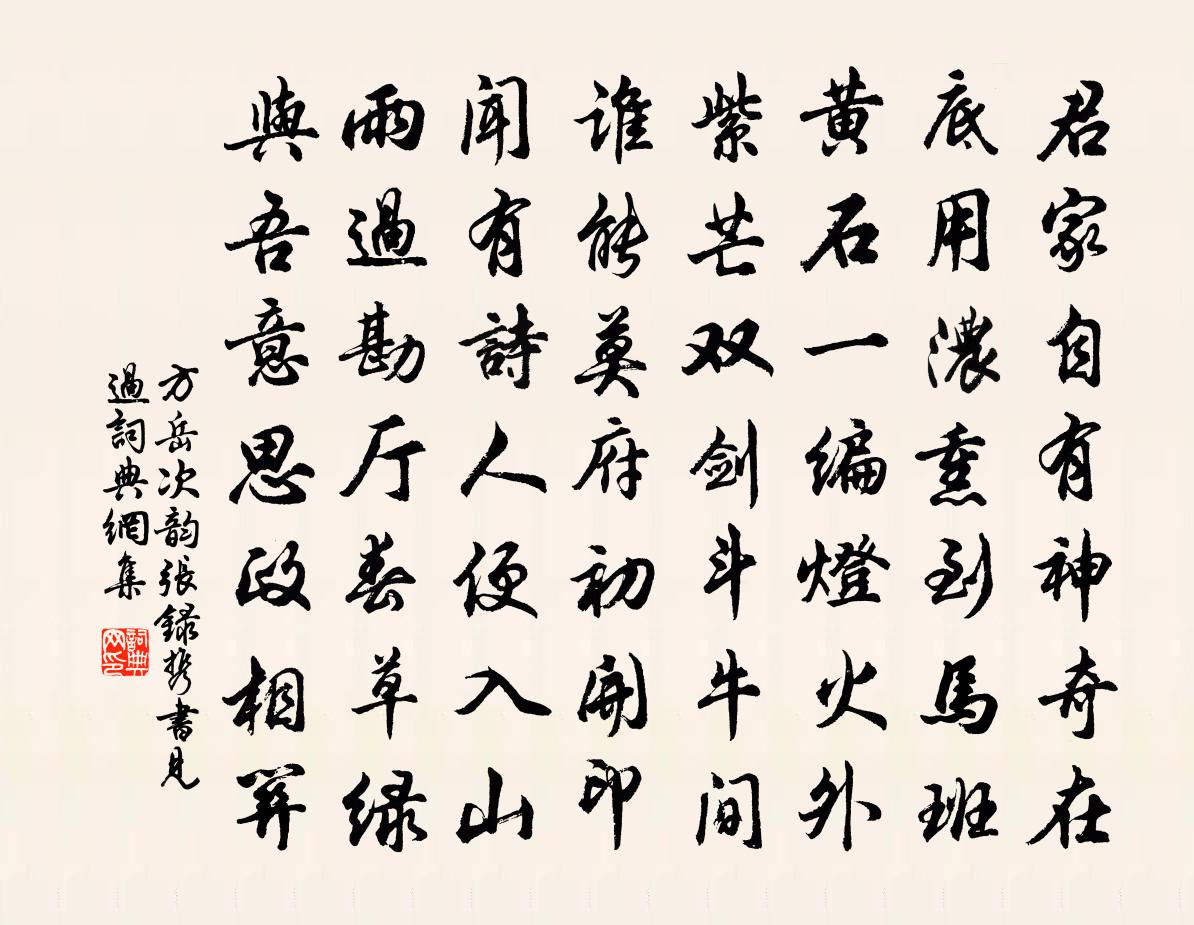 君家自有神奇在
底用濃熏到馬班
黄石一编燈火外
紫芒双剑斗牛间
谁能莫府初開印
闻有詩人便入山
雨過勘厅春草绿
與吾意思政相關
方岳次韵張録携書見
過詞典網集
詞典
网印